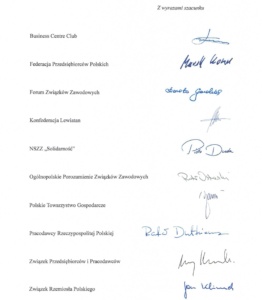 Z wyrazami szacunku
Business Centre Club
Federacja Przedsiębiorców Polskich Marek
Forum Związków Zawodowych Dorota
Konfederacja Lewiatan
NSZZ „Solidarność”
Ogólnopolskie Porozumienie Związków Zawodowych
Polskie Towarzystwo Gospodarcze
Pracodawcy Rzeczypospolitej Polskiej Rafał Dutkiewicz
Związek Przedsiębiorców i Pracodawców
Związek Rzemiosła Polskiego Jan Klimek